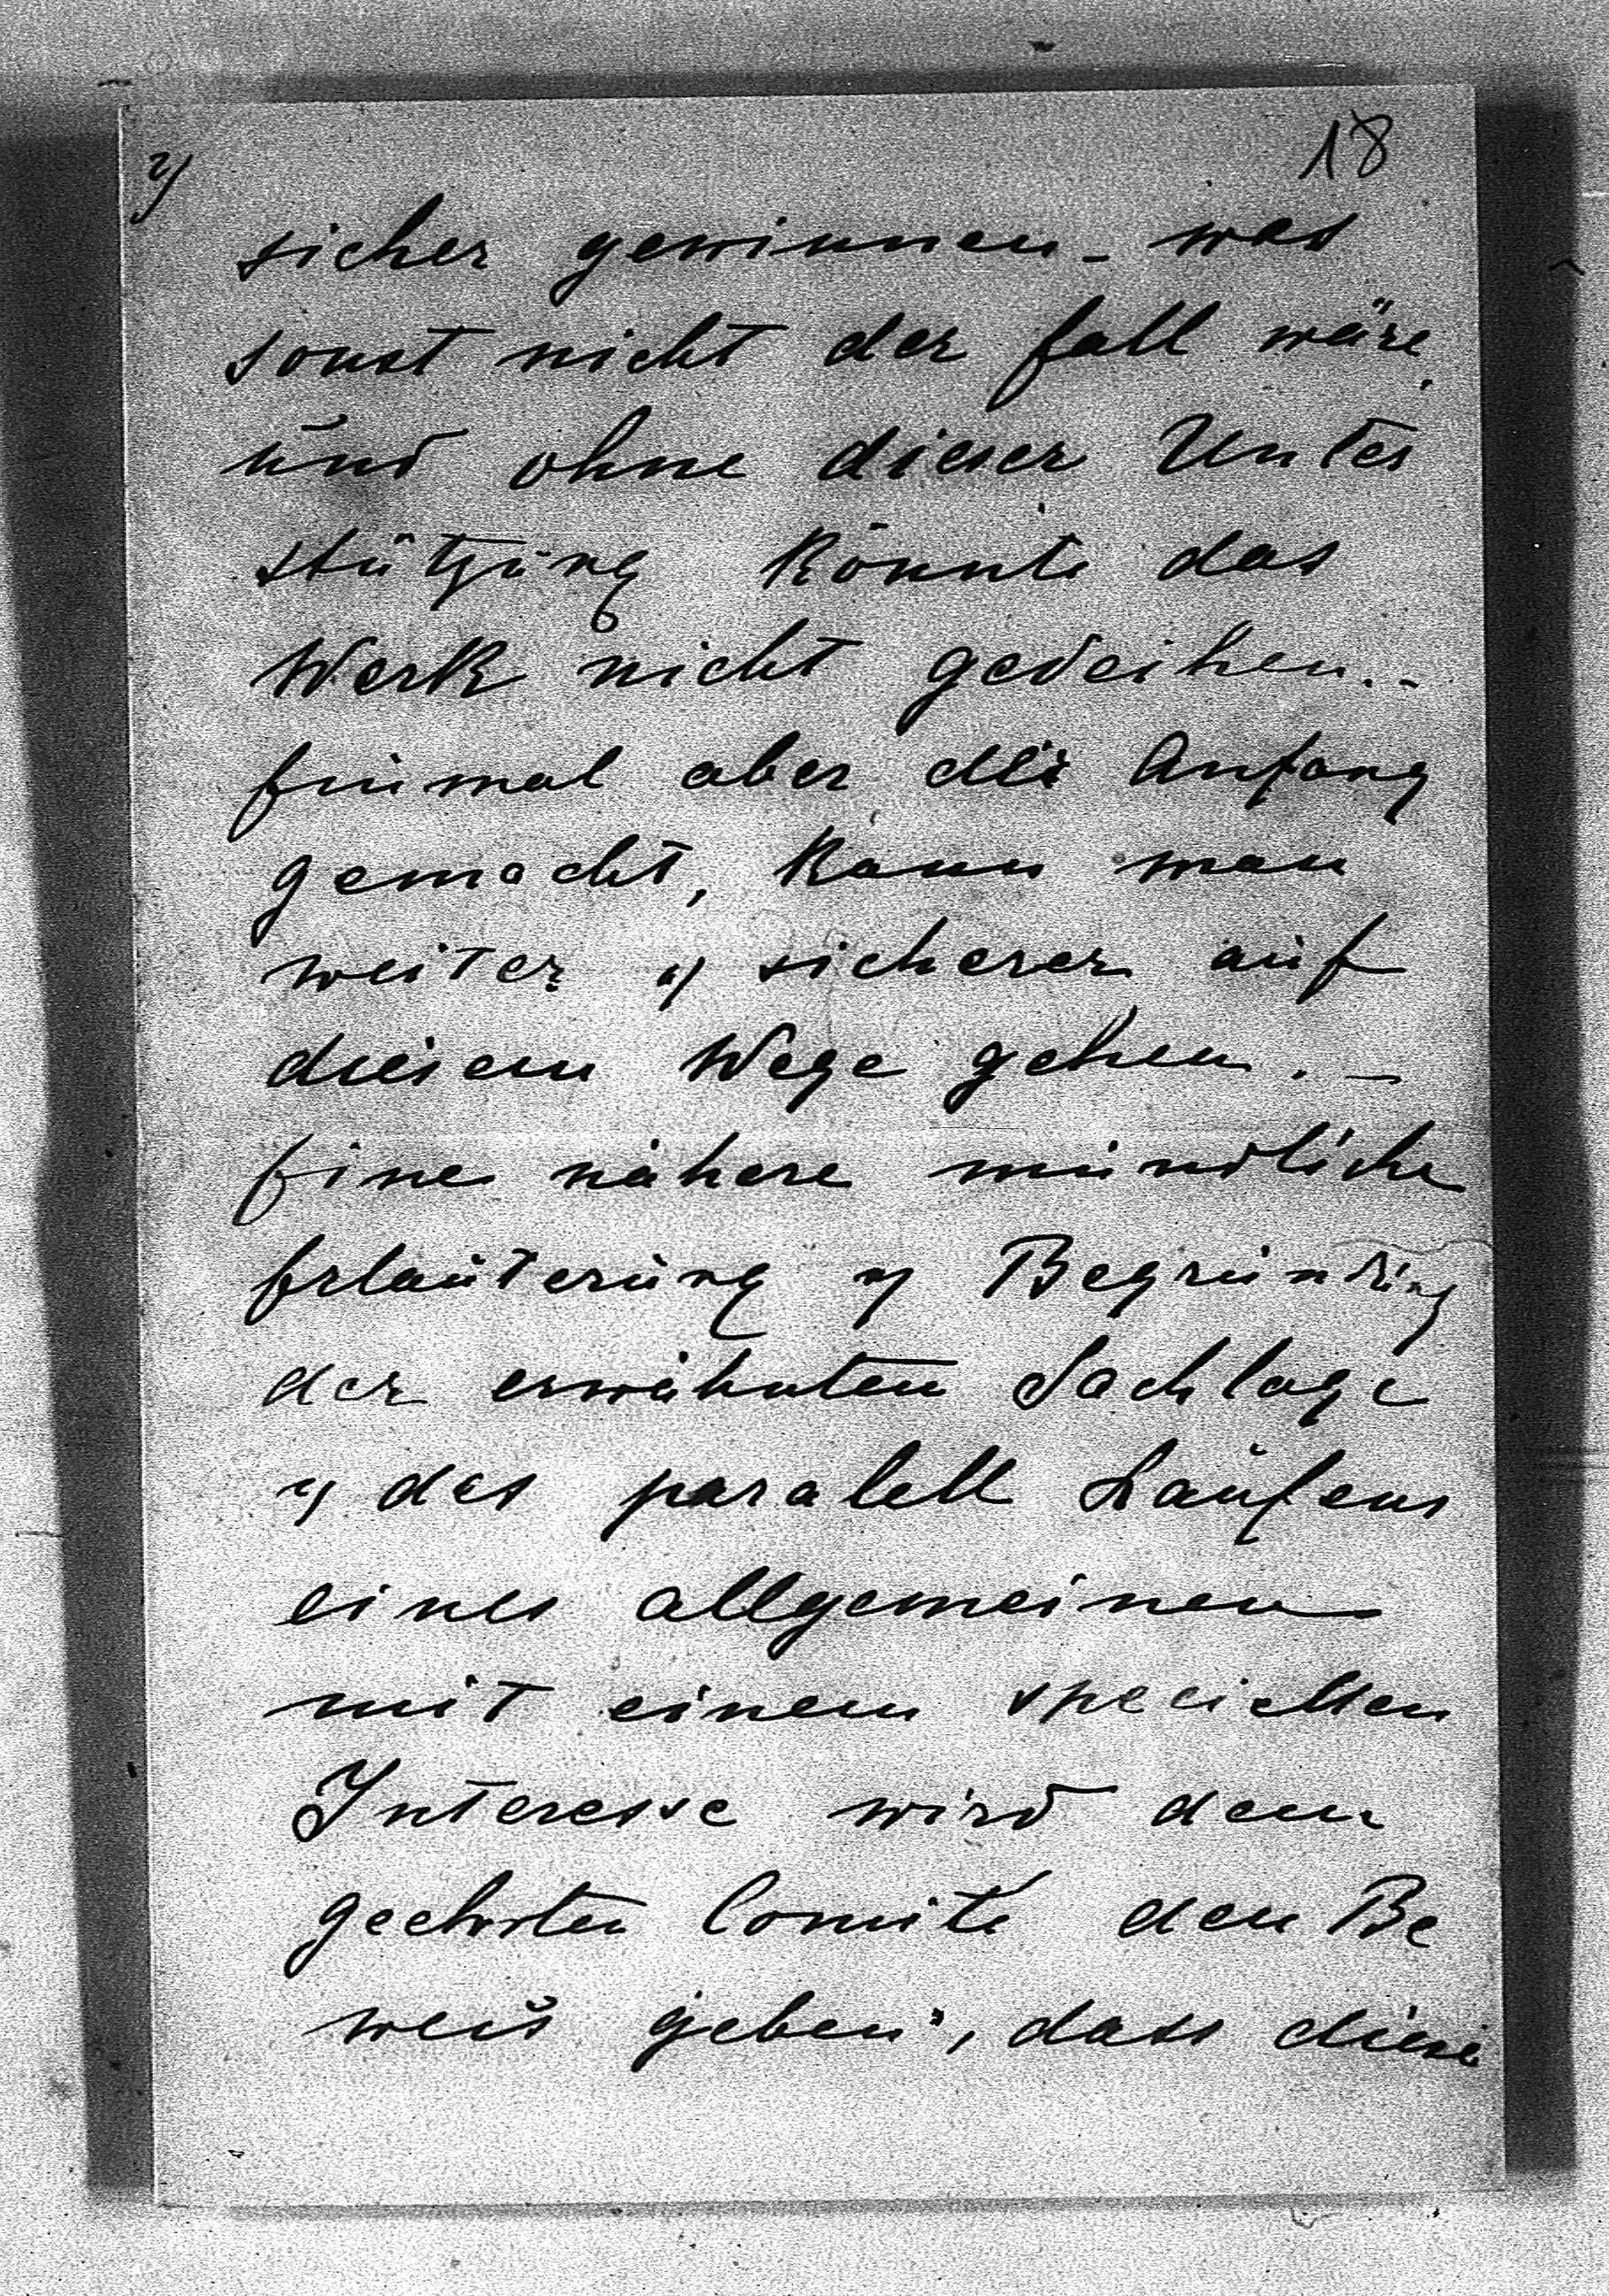 18
sicher gewinnen - was
sonst nicht der Fall wäre,
und ohne dieser Unter
stützung könnte das
Werk nicht gedeihen. -
Einmal aber der Anfang
gemacht, kann man
weiter u sicherer auf
diesem Wege gehen. -
Eine nähere mündliche
Erläuterung u Begründung
der erwähnten Sachlage
u des paralell Laufens
eines allgemeinen
mit einem speciellen
Interesse wird dem
geehrten Comité den Be
weis geben, dass diese